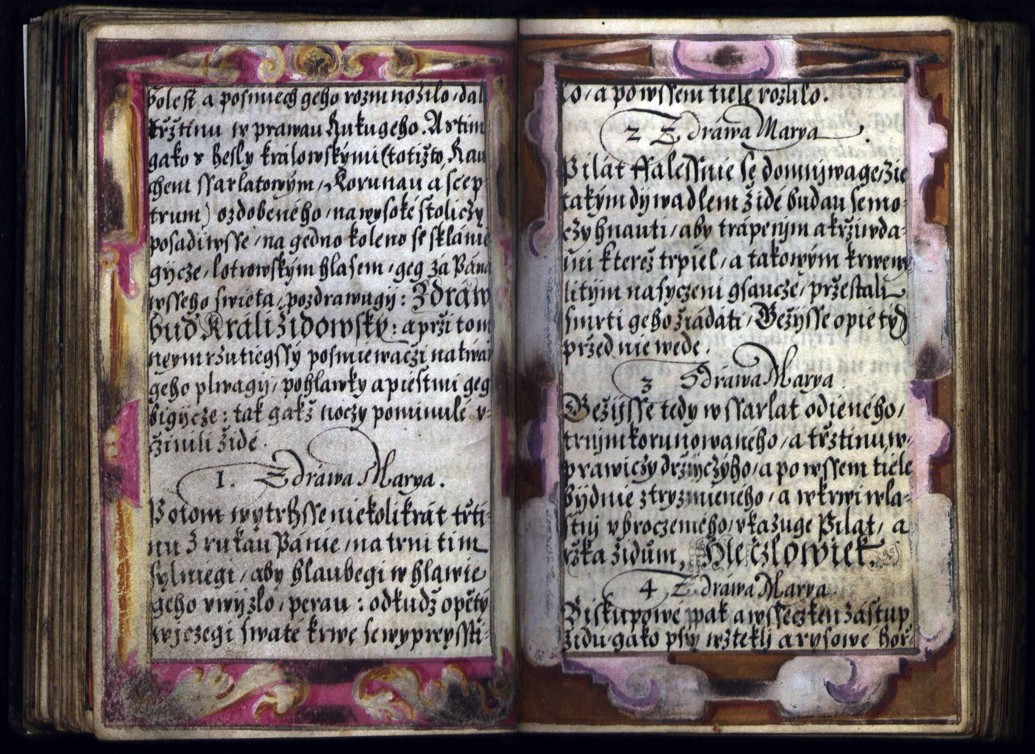 bolest a posmiech geho rozmnožilo, dali
tržtinu w prawau Ruku geho. A s tim
gako v besly královskými (totižto, Rau
chem ssarlatowým, Korunau a scep
trum) ozdobeného, na wysoké stoliczy
posadiwsse, na gedno koleno se sklánie
gycze, lotrowským hlasem, geg za Pána
wsseho swieta, pozdrawugij: Zdráw
buď Králi židowský: a pržitom
neymržutiegssý posmiewaczi na twarz
geho plwagij, pohlawky a piestmi geg
bigijcze: tak gakž noczy pominulé v-
činili židé.
1. Zdráwa Marya.
Potom wytrhsse niekolikrát trti-
nu z rukau Pánie, na trni tim
sylniegi, aby hlaubegi w hlawie
geho vwýzlo, perau: odkudž opěty
wjczegi swaté krwe se wyprejssti-
lo, a po wssem tiele rozlilo.
2 Zdráwa Marya.
Pilát ffalessnie se domniwage, že
takým dýwadlem židé budau se mo-
czy hnauti, aby trápenjm a kržiwda-
mi kterež trpiel, a takowým krwe wy
litým nasyczeni gsaucze, pržestali
smrti geho žiádati, Gežijsse opiet ť
před nie wede.
3 Zdráwa Marya.
Gežijsse tedy w ssarlat odieneho,
trnjm korunowaného, a tržtinu w-
prawiczy držijczýho, a po wssem tiele
býdnie ztryznieneho, a w krwi wla-
stnj vbroczeného, vkazuge Pilát, a
ržka židům, Hle człowiek.
4 Zdráwa Marya.
Biskupowé pak a wssecken zástup
židů, gako psy wzteklj a rysowé hor-